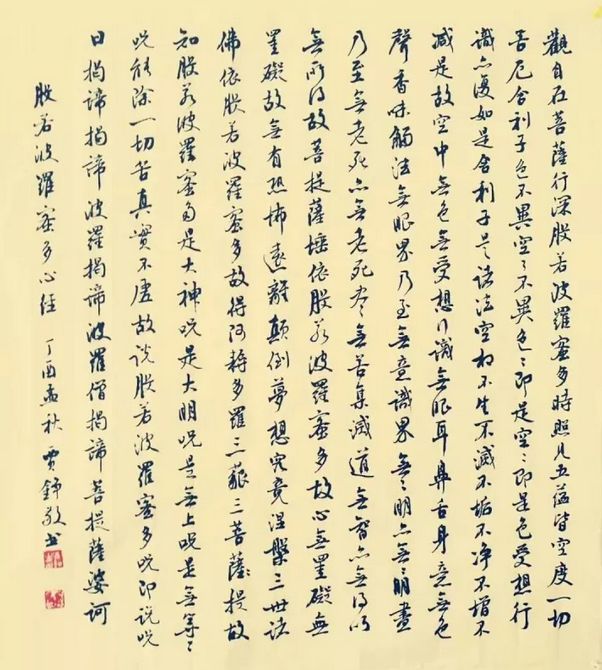 觀自在菩薩行深般若波羅蜜多時照見五蘊皆空度一切
苦厄舍利子色不異空〻不異色〻即是空〻即是色受想行
識亦復如是舍利子是诸法空相不生不滅不垢不净不增不
减是故空中無色無受想行識無眼耳鼻舌身意無色
聲香味觸法無眼界乃至無意識界無〻明亦無〻明盡
乃至無老死亦無老死尽無苦集滅道無智亦無得以
無所得故菩提薩埵依般若波羅蜜多故心無罣礙無
罣礙故無有恐怖遠離顛倒夢想究竟涅槃三世诸
佛依般若波羅蜜多故得阿耨多羅三藐三菩薩提故
知般若波羅蜜多是大神咒是大明咒是無上咒是無等〻
咒能除一切苦真實不虛故说般若波羅蜜多咒即说咒
曰揭諦揭諦波羅揭諦波羅僧揭諦菩提薩婆訶
般若波羅蜜多心经 丁酉孟秋 賈錚敬书